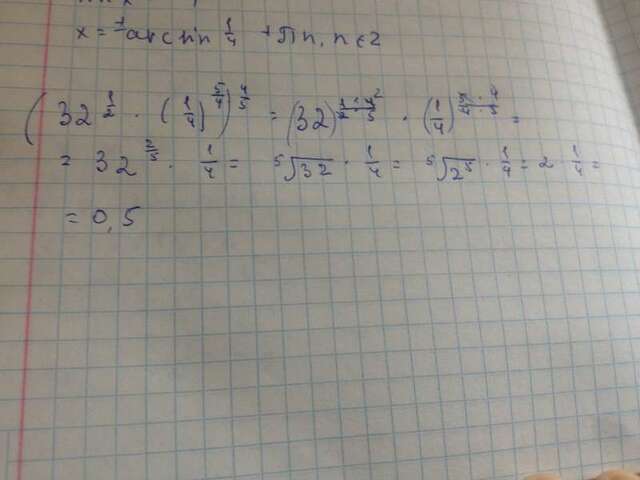 x = ⁻¹arcsin 1/4 + πn, n ∈ Z
(32^(1/2) · (1/4)^(5/4))^(4/5) = (32)^(1/2 · 4/5) · (1/4)^(5/4 · 4/5) =
= 32^(2/5) · 1/4 = ⁵√32 · 1/4 = ⁵√2⁵ · 1/4 = 2 · 1/4 =
= 0,5